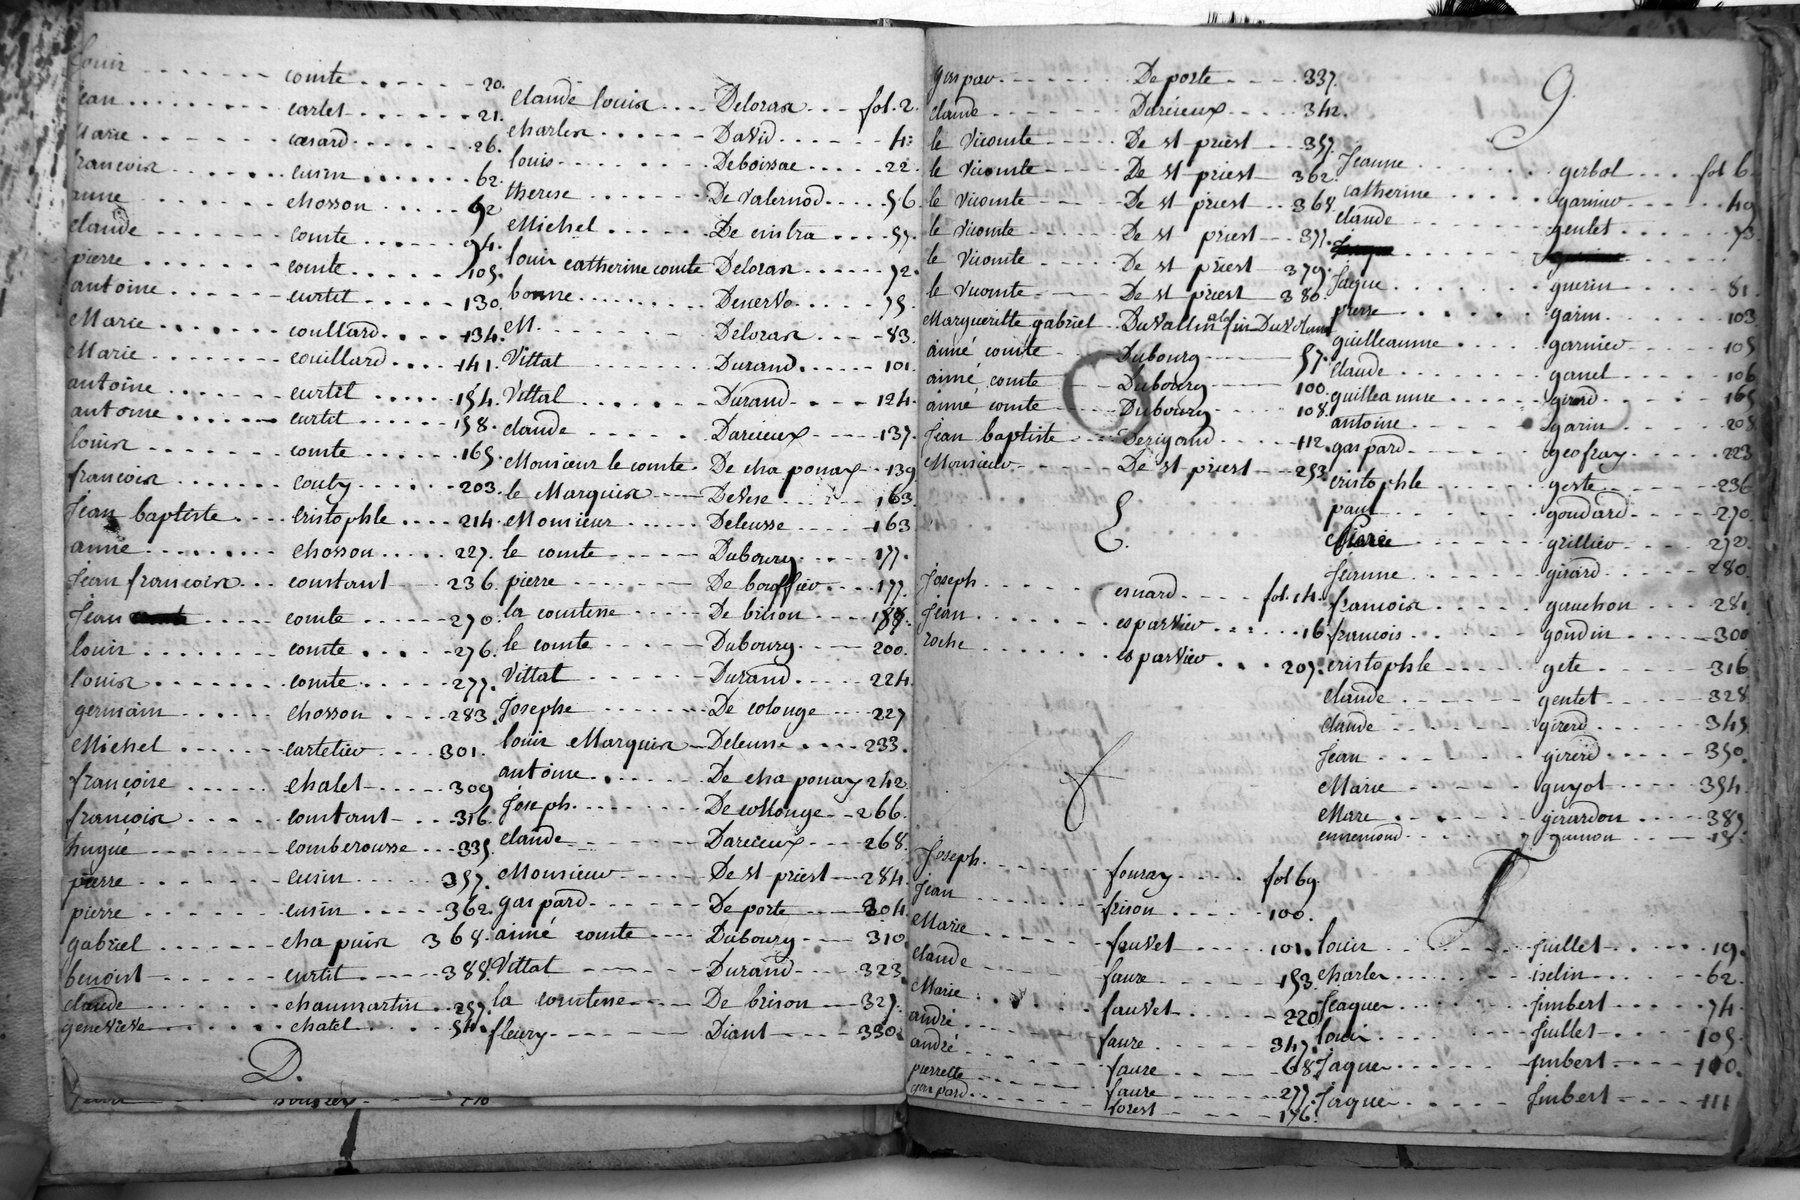 louis comte 20.
jean carlet 21.
Marie cesard 26.
francois cusin 62.
anne chosson 92
claude comte 94.
pierre comte 105.
antoine curtit 130.
Marie coullard 134.
Marie couillard 141.
antoine curtil 154.
antoine curtit 158.
louis comte 165.
francois couty 203.
Jean baptiste cristophle 214.
anne chosson 227.
Jean francois constant 236
Jean comte 270
louis comte 276.
louis comte 277.
germain chosson 283.
Michel cartelier 301.
françoise chalet 309
françois constant 316
hugue comberousse 335.
pierre cusin 357.
pierre cusin 362.
gabriel chapuis 368.
benoist curtit 388.
claude chaumartin 257.
genevieve chatel 54.
D.
Claude louis Deloras fol. 2.
charles David 4:
louis Deboissac 22.
therese De Valernod 56
Michel De 57.
louis catherine comte Deloras 72.
bonne Denervo 75.
M. Deloras 83.
Vittal Durand 101
Vittal Durand 124.
claude Darcieux 137.
Monsieur le comte De chaponay 139
le Marquis Devese 163
Monsieur Deleusse 163
le comte Dubourg 177.
pierre De bouffier 177.
la comtesse De brison
le comte Dubourg 200.
Vittal Durand 224.
Josephe De colonge 227
louis Marquis Deleusse 233.
antoine De chaponay 242
Joseph De collonge 266.
claude Darcieux 268.
Monsieur De st priest 284.
gaspard De porte 304.
aimé comte Dubourg 310
Vittal Durand 323
la comtesse De brison 327.
fleury Diant 330.
gaspar De porte 337.
claude Darcieux 342.
le Vicomte De st priest 357.
le Vicomte De st priest 362.
le Vicomte De st priest 368.
le Vicomte De st priest 377.
le Vicomte De st priest 379.
le Vicomte De st priest 386.
Margueritte gabriel Duvallin a la fin Du volume
aimé comte Dubourg 57.
aimé comte Dubourg 100.
aimé comte Dubourg 108.
Jean baptiste Derigand 112.
Monsieur De st priest 253.
E.
Joseph esnard fol. 14.
Jean esparvier 16
roche esparvier 207.
f
Joseph. fouray fol 69.
Jean frison 100.
Marie fauvet 101.
claude faure 153.
Marie fauvet 220
andré faure 347.
andré faure 68
pierrette faure 277.
gaspard forest 176.
g.
Jeanne gerbol fol 6.
catherine garnier 49
claude gentet 73.
Jaque guerin 81.
pierre garin 103
guilleaumme garnier 105
claude ganel 106
guilleaumme girerd 165
antoine garin 205
gaspard geofray 223
cristophle geste 236
paul goudard 270
pierre grillier 272.
Jeanne girard 280
francois gauchon 281
francois gondin 300
cristophle gete 316
claude gentet 328
claude girerd 345
Jean girerd 350.
Marie guyot 354
Marie girardon 385
ennemond guinon 15.
J
louis Juillet 19.
charles iselin 62.
Jaques Jmbert 74.
louis Juillet 105.
Jaques Jmbert 100.
Jaques Jmbert 111